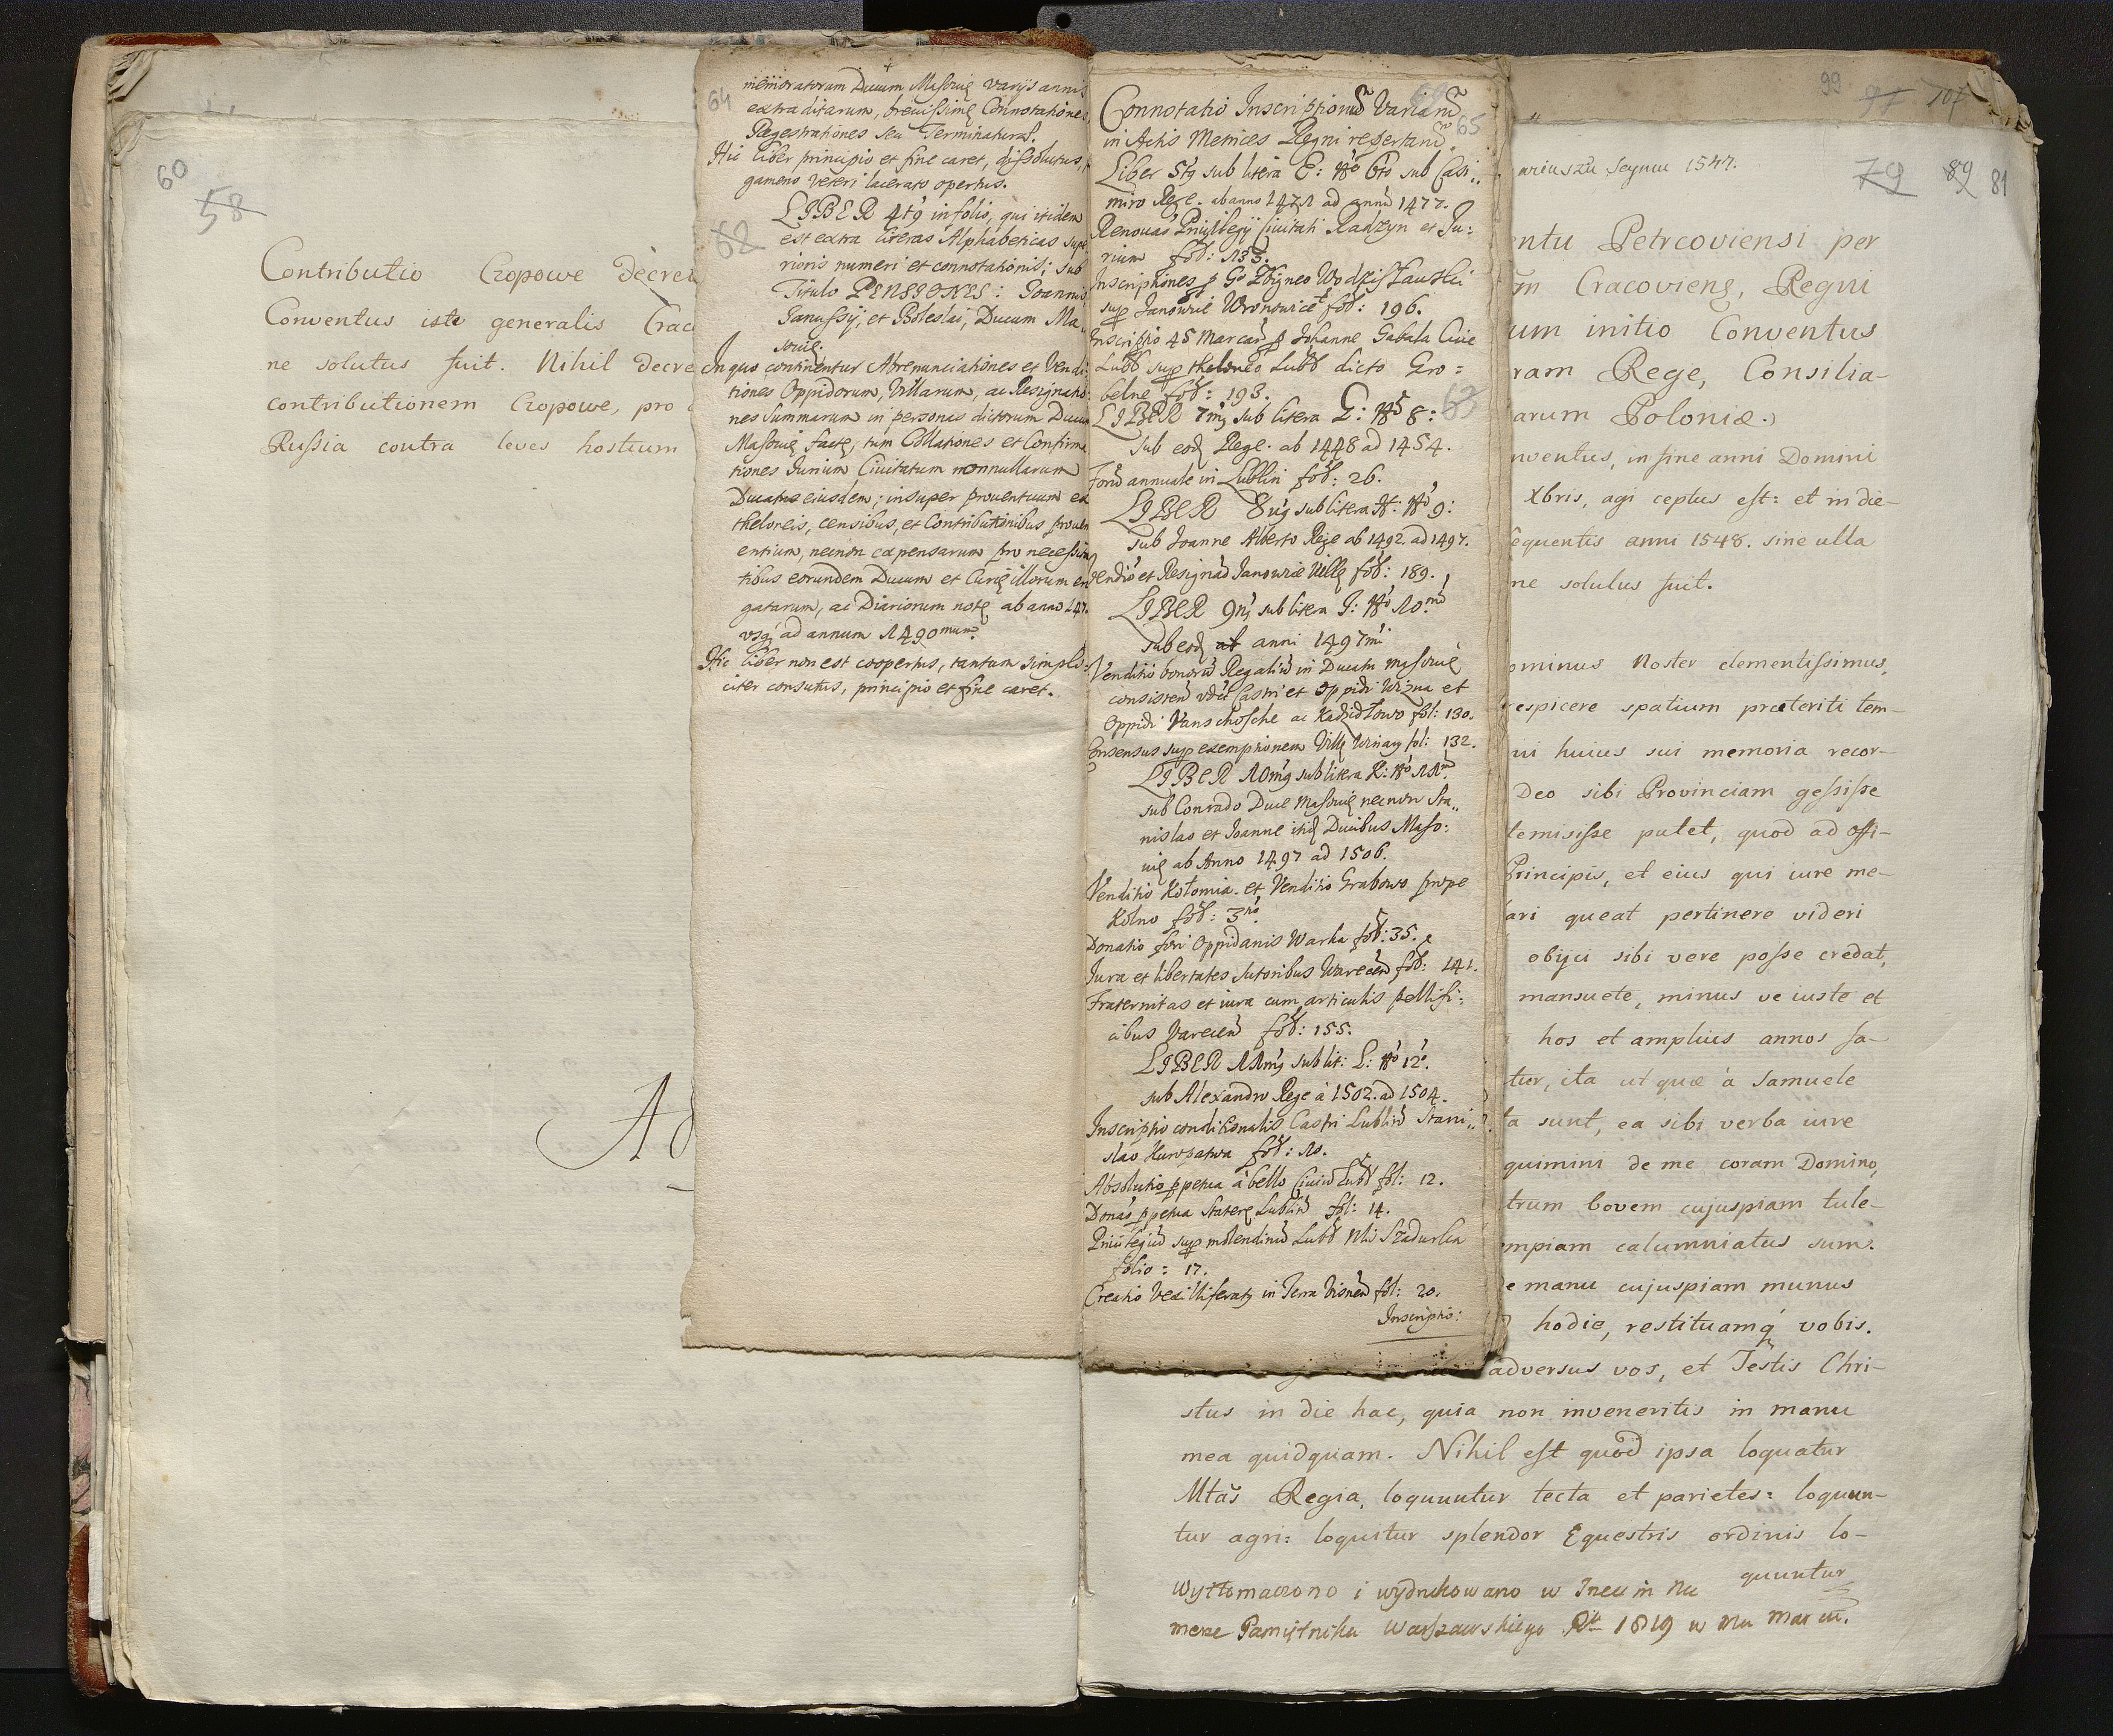 60
58
Contributio Czopowe Decre
Conventus iste generalis Crac
ne solutus fuit. Nihil decre
contributionem Czopowe, pro
Russia contra leves hostium
Ad
64
memoratorum Ducum Masovię varijs annis
extraditarum, brevissimę Connotationes
Regestrationes seu Terminatura.
Hic liber principio et fine caret, dissolutus,
gameno veteri lacerato opertus.
62
LIBER 4t9 in folio, qui itidem
est extra literas Alphabeticas supe
rioris numeri et connotationis; sub
Titulo PENSIONES: Joannis
Janussij, et Boleslai, Ducum Ma
sovię.
In quo continentur Abrenunciationes et Vendi
tiones Oppidorum, Villarum, ac Resignatio
nes Summarum in personas dictorum Ducum
Masovię factę, tum Collationes et Confirma
tiones Jurium, Civitatum nonnullarum
Ducatus eiusdem; insuper proventuum ex
theloneis, censibus, et Contributionibus proven
entium, necnon expensarum pro necessita
tibus eorundem Ducum et Curię illorum ero
gatarum, ac Diariorum notę ab anno 147
usq ad annum 1490mum.
Hic liber non est coopertus, tantum simpli
citer consutus, principio et fine caret.
Connotatio Inscriptionu Varian
65
in Actis Metrices Regni repertaru.
Liber 5t9 sub litera E: No 6to sub Casi„
miro Rege. ab anno 1471 ad annu 1477.
Renovao Privilegij Civitati Radzyn et Ju:
rium fol: 133.
Inscriptiones p Go Zbigneo Wodzisławski
sup Janowie Wronowice fol: 196.
Inscriptio 45 Marcar p Johanne Gabala Cive
Lubl sup theloneo Lubl dicto Gro=
belne fol: 193.
63
LIBER 7m9 sub litera G: No 8:
sub eod Rege. ab 1448 ad 1454.
Foru annuale in Lublin fol: 26.
LIBER 8v9 sub litera H: No 9:
sub Joanne Alberto Rege ab 1492. ad 1497.
Vendio et Resignao Janowie Villę fol: 189.
LIBER 9n9 sub litera I: No 10mo
sub eod anni 1497mi
Venditio bonoru Regaliu in Ducatu Masovię
consisten vdlt Castri et Oppidi Wizna et
Oppidi Wanschosche ac Kadzidłowo fol: 130.
Consensus sup exemptionem Villę Winary fol: 132.
LIBER 10m9 sub litera K: No 11mo
sub Conrado Duce Masovię necnon Sta„
nislao et Joanne itid Ducibus Maso:
vię ab Anno 1497 ad 1506.
Venditio Kołomia. et Venditio Grabowo prope
Kolno fol: 3tio
Donatio fori Oppidanis Warka fol: 35.
Jura et libertates Sutoribus Warecen fol: 141.
Fraternitas et iura cum articulis pellifi:
cibus Varecen fol: 155.
LIBER 11m9 sub lit: L: No 12o.
sub Alexandro Rege a 1502. ad 1504.
Inscriptio conditionalis Castri Lublin Stani„
slao Kuropatwa fol: 10.
Absolutio ppetua a bello Civiu Lubl fol: 12.
Donao ppetua staterę Lublin fol: 14.
Privilegiu sup molendinu Lubl Nli Szadurka
folio: 17.
Creatio Vexilliferat9 in Terra Visnen fol: 20.
Inscriptio:
99 97 107
ariuszu Seymu 1547.
79 89 81
entu Petrcoviensi per
m Cracovieng, Regni
um initio Conventus
ram Rege, Consilia-
arum Poloniæ.
nventus, in fine anni Domini
Xbris, agi ceptus est: et in die-
equentis anni 1548. sine ulla
ne solutus fuit.
ominus Noster clementissimus,
respicere spatium præteriti tem-
ni huius sui memoria recor-
Deo sibi Provinciam gessisse
temisisse putet, quod ad offi-
Principis, et eius qui iure me-
ari queat pertinere videri
obijci sibi vere posse credat,
mansuete, minus ve iuste et
hos et amplius annos fa-
tur, ita ut quæ a Samuele
ta sunt, ea sibi verba iure
quimini de me coram Domino,
trum bovem cujuspiam tule-
mpiam calumniatus sum.
e manu cujuspiam munus
hodie, restituamq vobis.
adversus vos, et Testis Chri-
stus in die hac, quia non inveneritis in manu
mea quidquam. Nihil est quod ipsa loquatur
Mtas Regia, loquuntur tecta et parietes: loquun-
tur agri: loquitur splendor Equestris ordinis lo-
quuntur
wytłomaczono i wydrukowano w Trzecim Nu
merze Pamiętnika Warszawskiego Rku 1819 w Mu Marcu.